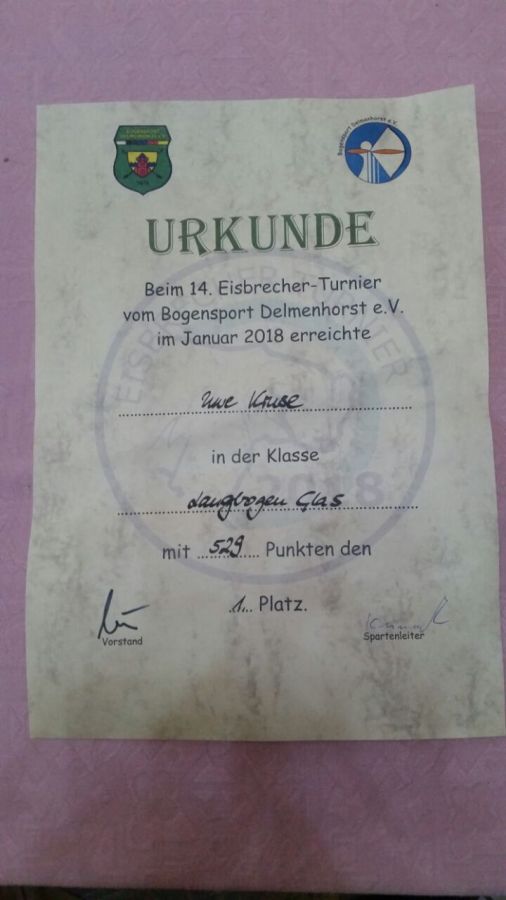 Bogensport Delmenhorst e.V.
URKUNDE
Beim 14. Eisbrecher-Turnier
vom Bogensport Delmenhorst e.V.
im Januar 2018 erreichte
Uwe Kruse
in der Klasse
Langbogen Glas
2018
mit ...529.... Punkten den
.1... Platz.
Vorstand
Spartenleiter